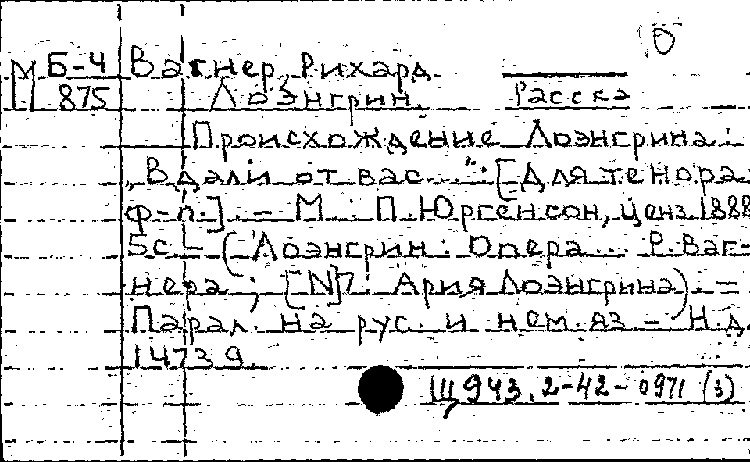 О
М Б-4 Вагнер, Рихард
875 Лоэнгрин. Расска
Происхождение Лоэнгрина:
"Вдали от вас...": [Для тенора
ф-п.]. - М.: П. Юргенсон, ценз. 1888
5с - (Лоэнгрин: Опера... Р. Ваг-
нера; [N]7: Ария Лоэнгрина). -
Парал. на рус. и нем. яз - Н.д.
14739.
Щ943.2-42-0971 (3)